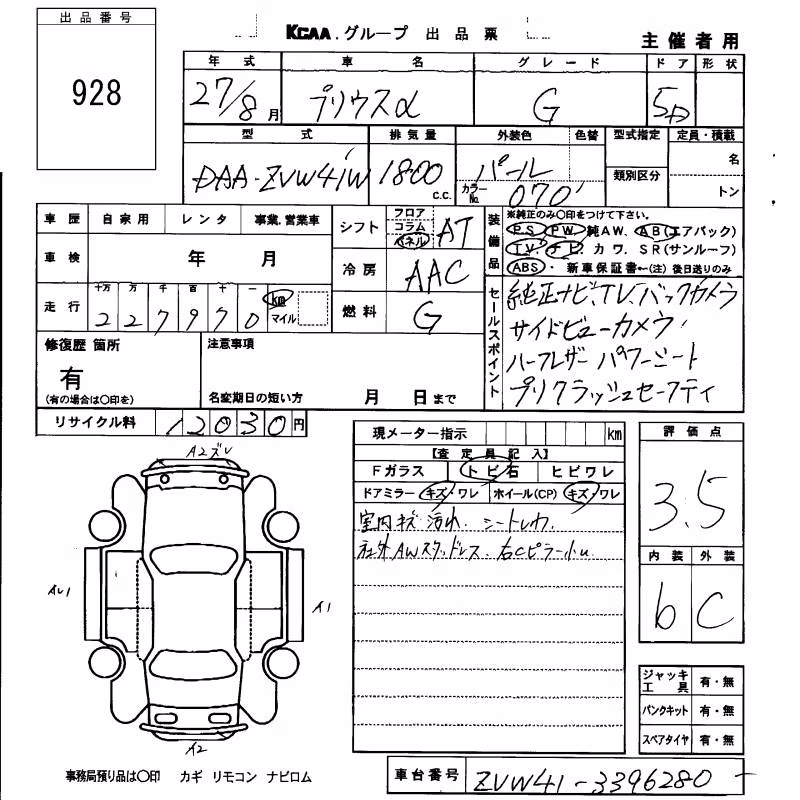 出品番号
928
KCAA.グループ 出品票
主催者用
年式 車名 グレード ドア 形状
27/8月 プリウスα G 5D
型式 排気量 外装色 色替 型式指定 定員・積載
DAA-ZVW41W 1800 C.C. パール カラーNo. 070 類別区分 名 トン
車歴 自家用 レンタ 事業、営業車
車検 年 月
走行 十万 万 千 百 十 一
227970 km マイル
シフト フロア コラム パネル AT
冷房 AAC
燃料 G
装備品
※純正のみ〇印をつけて下さい。
PS PW 純AW. AB(エアバック)
TV. ナビ. カワ. SR(サンルーフ)
ABS・ 新車保証書←(注)後日送りのみ
セールスポイント
純正ナビ、TV、バックカメラ
サイドビューカメラ
ハーフレザー パワーシート
プリクラッシュセーフティ
修復歴 箇所
有
(有の場合は〇印を)
注意事項
名変期日の短い方 月 日まで
リサイクル料 12030円
現メーター指示 km
【査定員記入】
Fガラス トビ石 ヒビワレ
ドアミラー キズ・ワレ ホイール(CP) キズ・ワレ
室内キズ 汚れ. シートレカ.
社外AWスタッドレス. 右Cピラー小u
評価点
3.5
内装 外装
b C
A2ズレ
AU1
A1
A2
ジャッキ工具 有・無
パンクキット 有・無
スペアタイヤ 有・無
事務局預り品は〇印 カギ リモコン ナビロム
車台番号 ZVW41-3396280